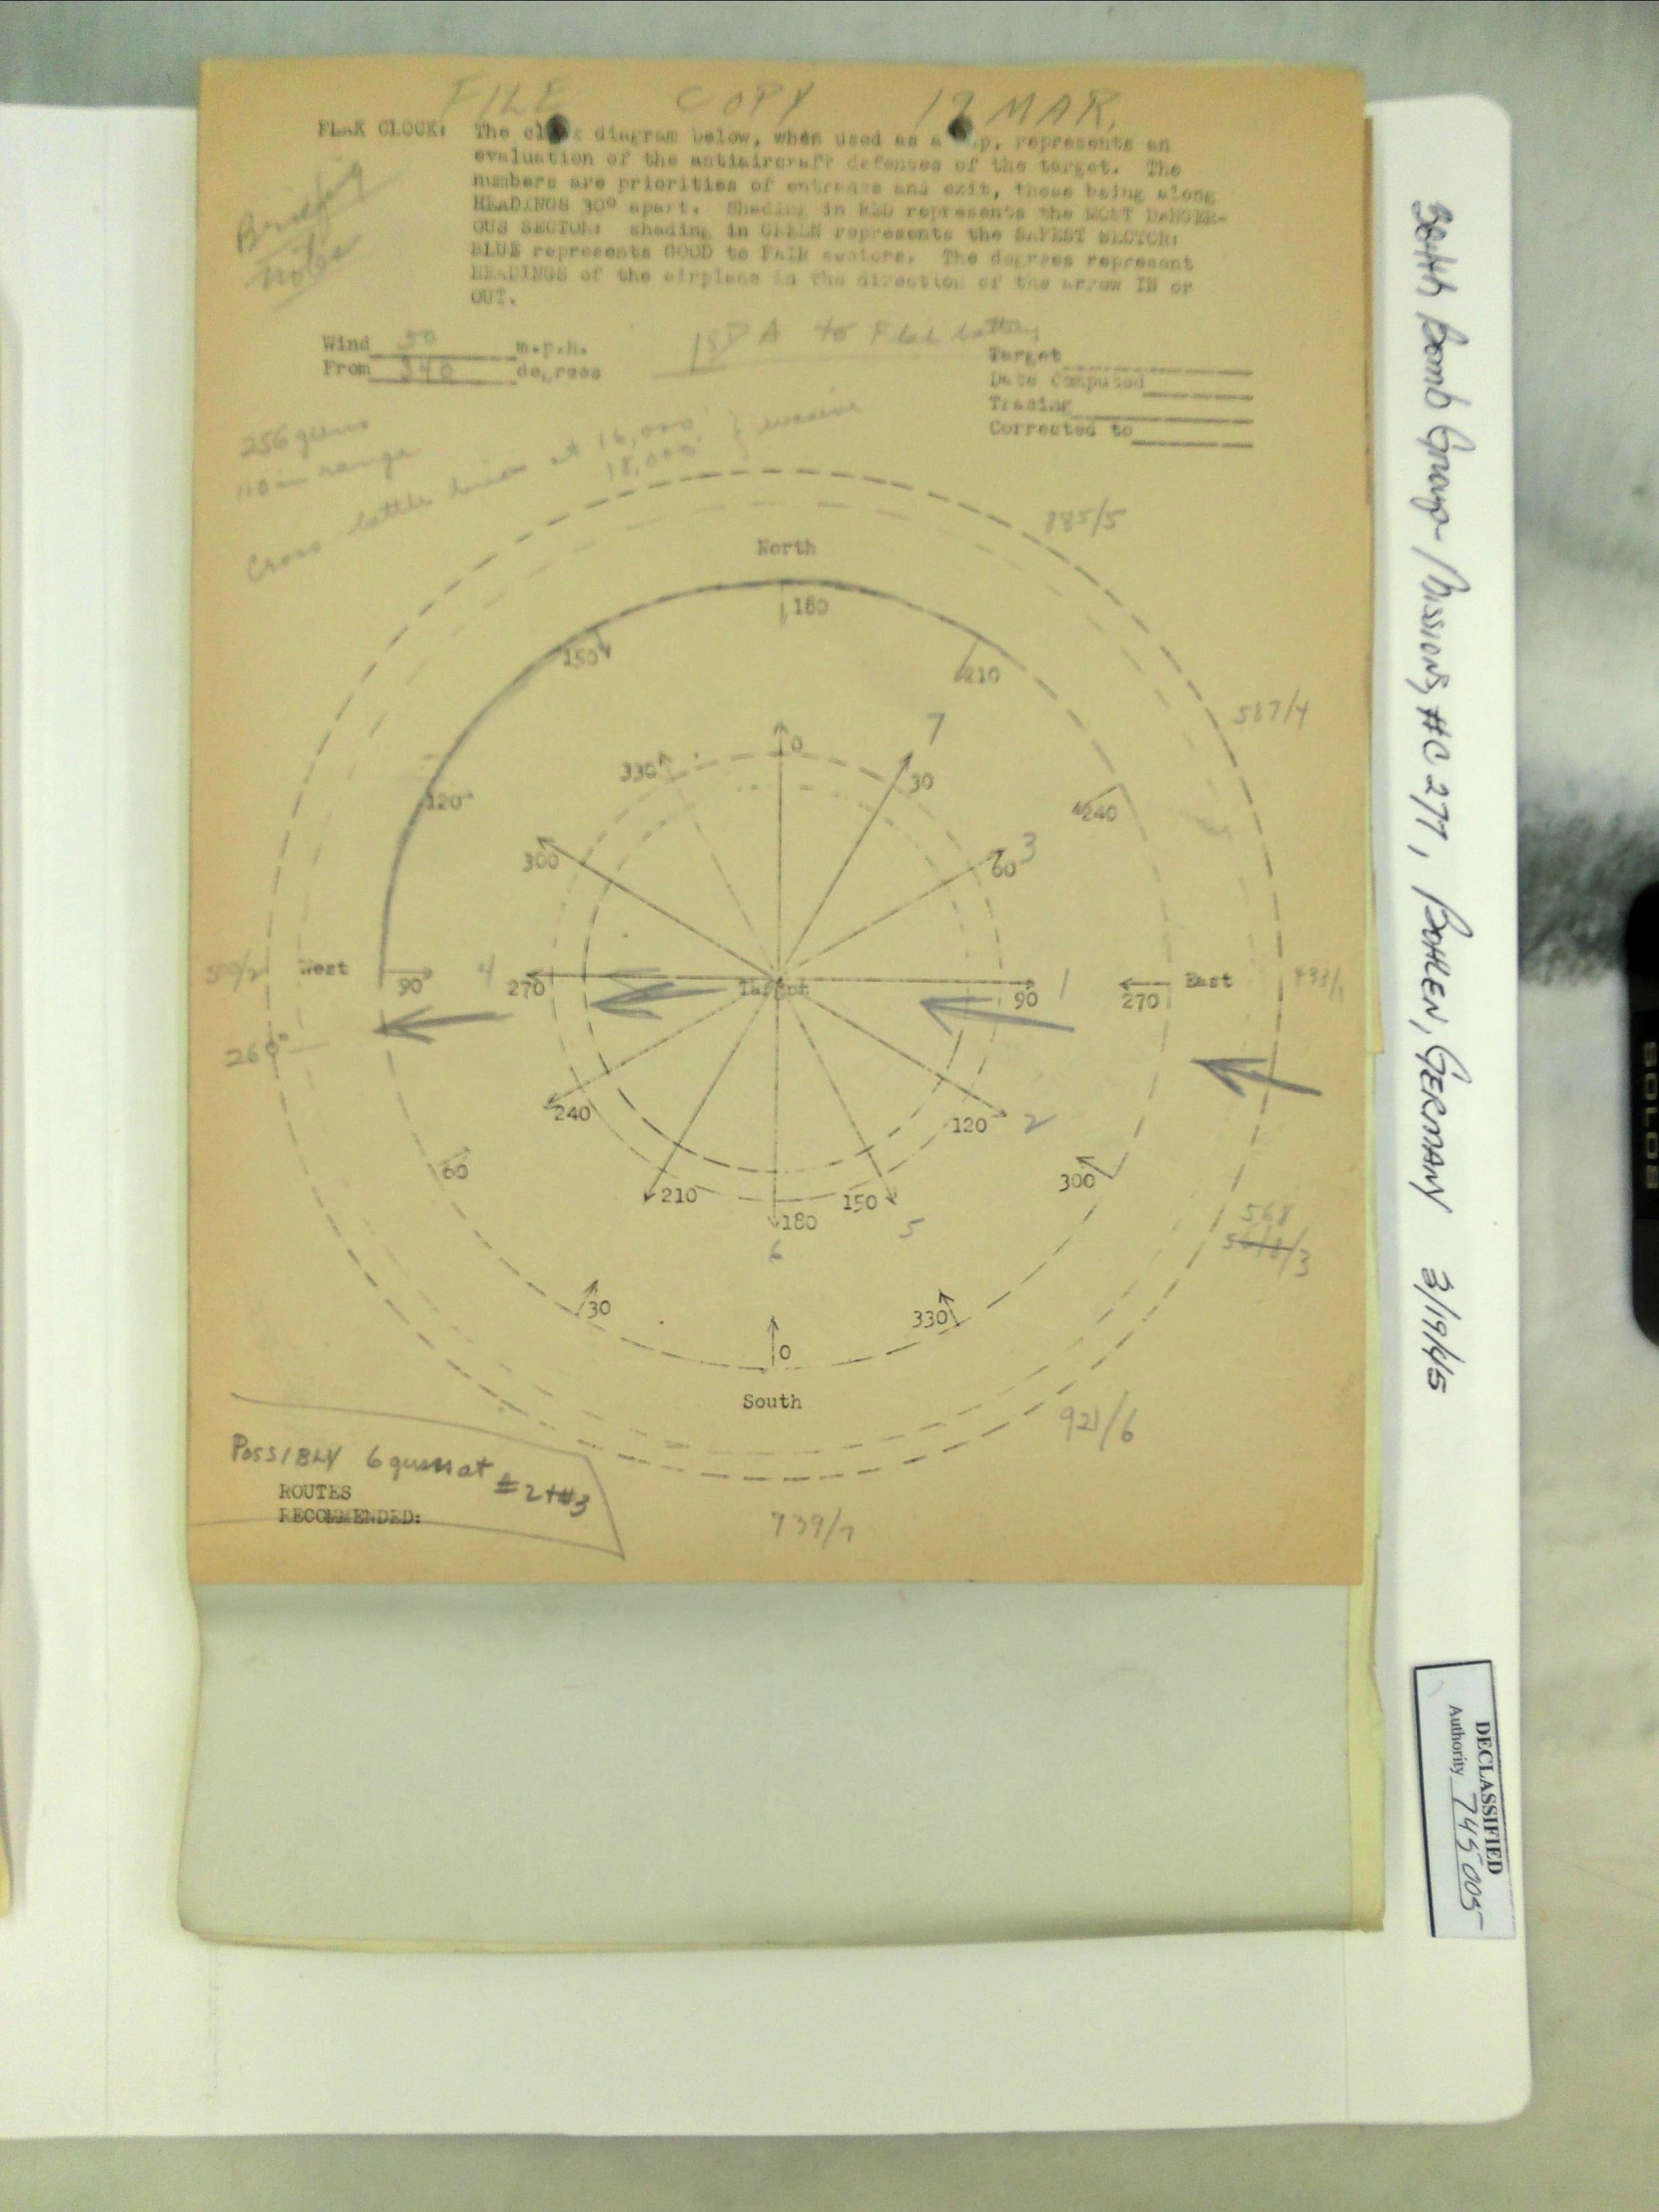 FILE COPY 19 MAR,
FLAK CLOCK: The clock diagram below, when used as a map, represents an
evaluation of the antiaircraft defenses of the target. The
numbers are priorities of entrance and exit, these being along
HEADINGS 30° apart. Shading in RED represents the MOST DANGER-
OUS SECTOR: shading in GREEN represents the SAFEST SECTOR:
BLUE represents GOOD to FAIR sectors. The degrees represent
HEADINGS of the airplane in the direction of the arrow IN or
OUT.
Briefing
notes
Wind 50 m.p.h.
From 340 degrees
1st D A to Flak battery
Target
Date Computed
Tracing
Corrected to
256 guns
110 in range
Cross battle lines at 16,000' } evasive
18,000'
885/5
North
180
150
210
587/4
7
0
330
30
120
240
3
300
60
500/2
West
90
4
270
Target
90
1
270
East
433/1
260°
240
120
2
60
300
568
568/3
210
150
180
5
6
30
330
0
South
921/6
POSSIBLY 6 guns at
#2+#3
ROUTES
RECOMMENDED:
739/7
384th Bomb Group- Missions, #C 277, BOHLEN, GERMANY 3/19/45
DECLASSIFIED
Authority 745005